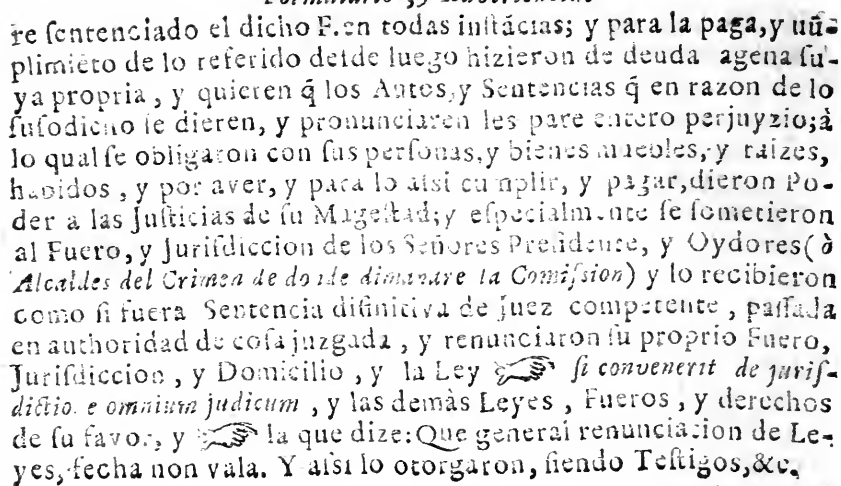 re sentenciado el dicho F. en todas instácias; y para la paga, y
plimiéto de lo referido desde luego hizieron de deuda agena su-
ya propria, y quieren q̃ los Autos, y Sentencias q̃ en razon de lo
susodicho se dieren, y pronunciaren les pare entero perjuyzio; à
lo qual se obligaron con sus personas, y bienes muebles, y raizes,
havidos, y por aver, y para lo assi cumplir, y pagar, dieron Po-
der a las Justicias de su Magestad; y especialmente se sometieron
al Fuero, y Jurisdiccion de los Señores Presidente, y Oydores (ò
Alcaldes del Crimen de donde dimanare la Comission) y lo recibieron
como si fuera Sentencia difinitiva de juez competente, passada
en authoridad de cosa juzgada, y renunciaron su proprio Fuero,
Jurisdiccion, y Domicilio, y la Ley ☞ si convenerit de juris-
dictione omnium judicum, y las demàs Leyes, Fueros, y derechos
de su favor, y ☞ la que dize: Que general renunciacion de Le-
yes, fecha non vala. Y assi lo otorgaron, siendo Testigos, &c.